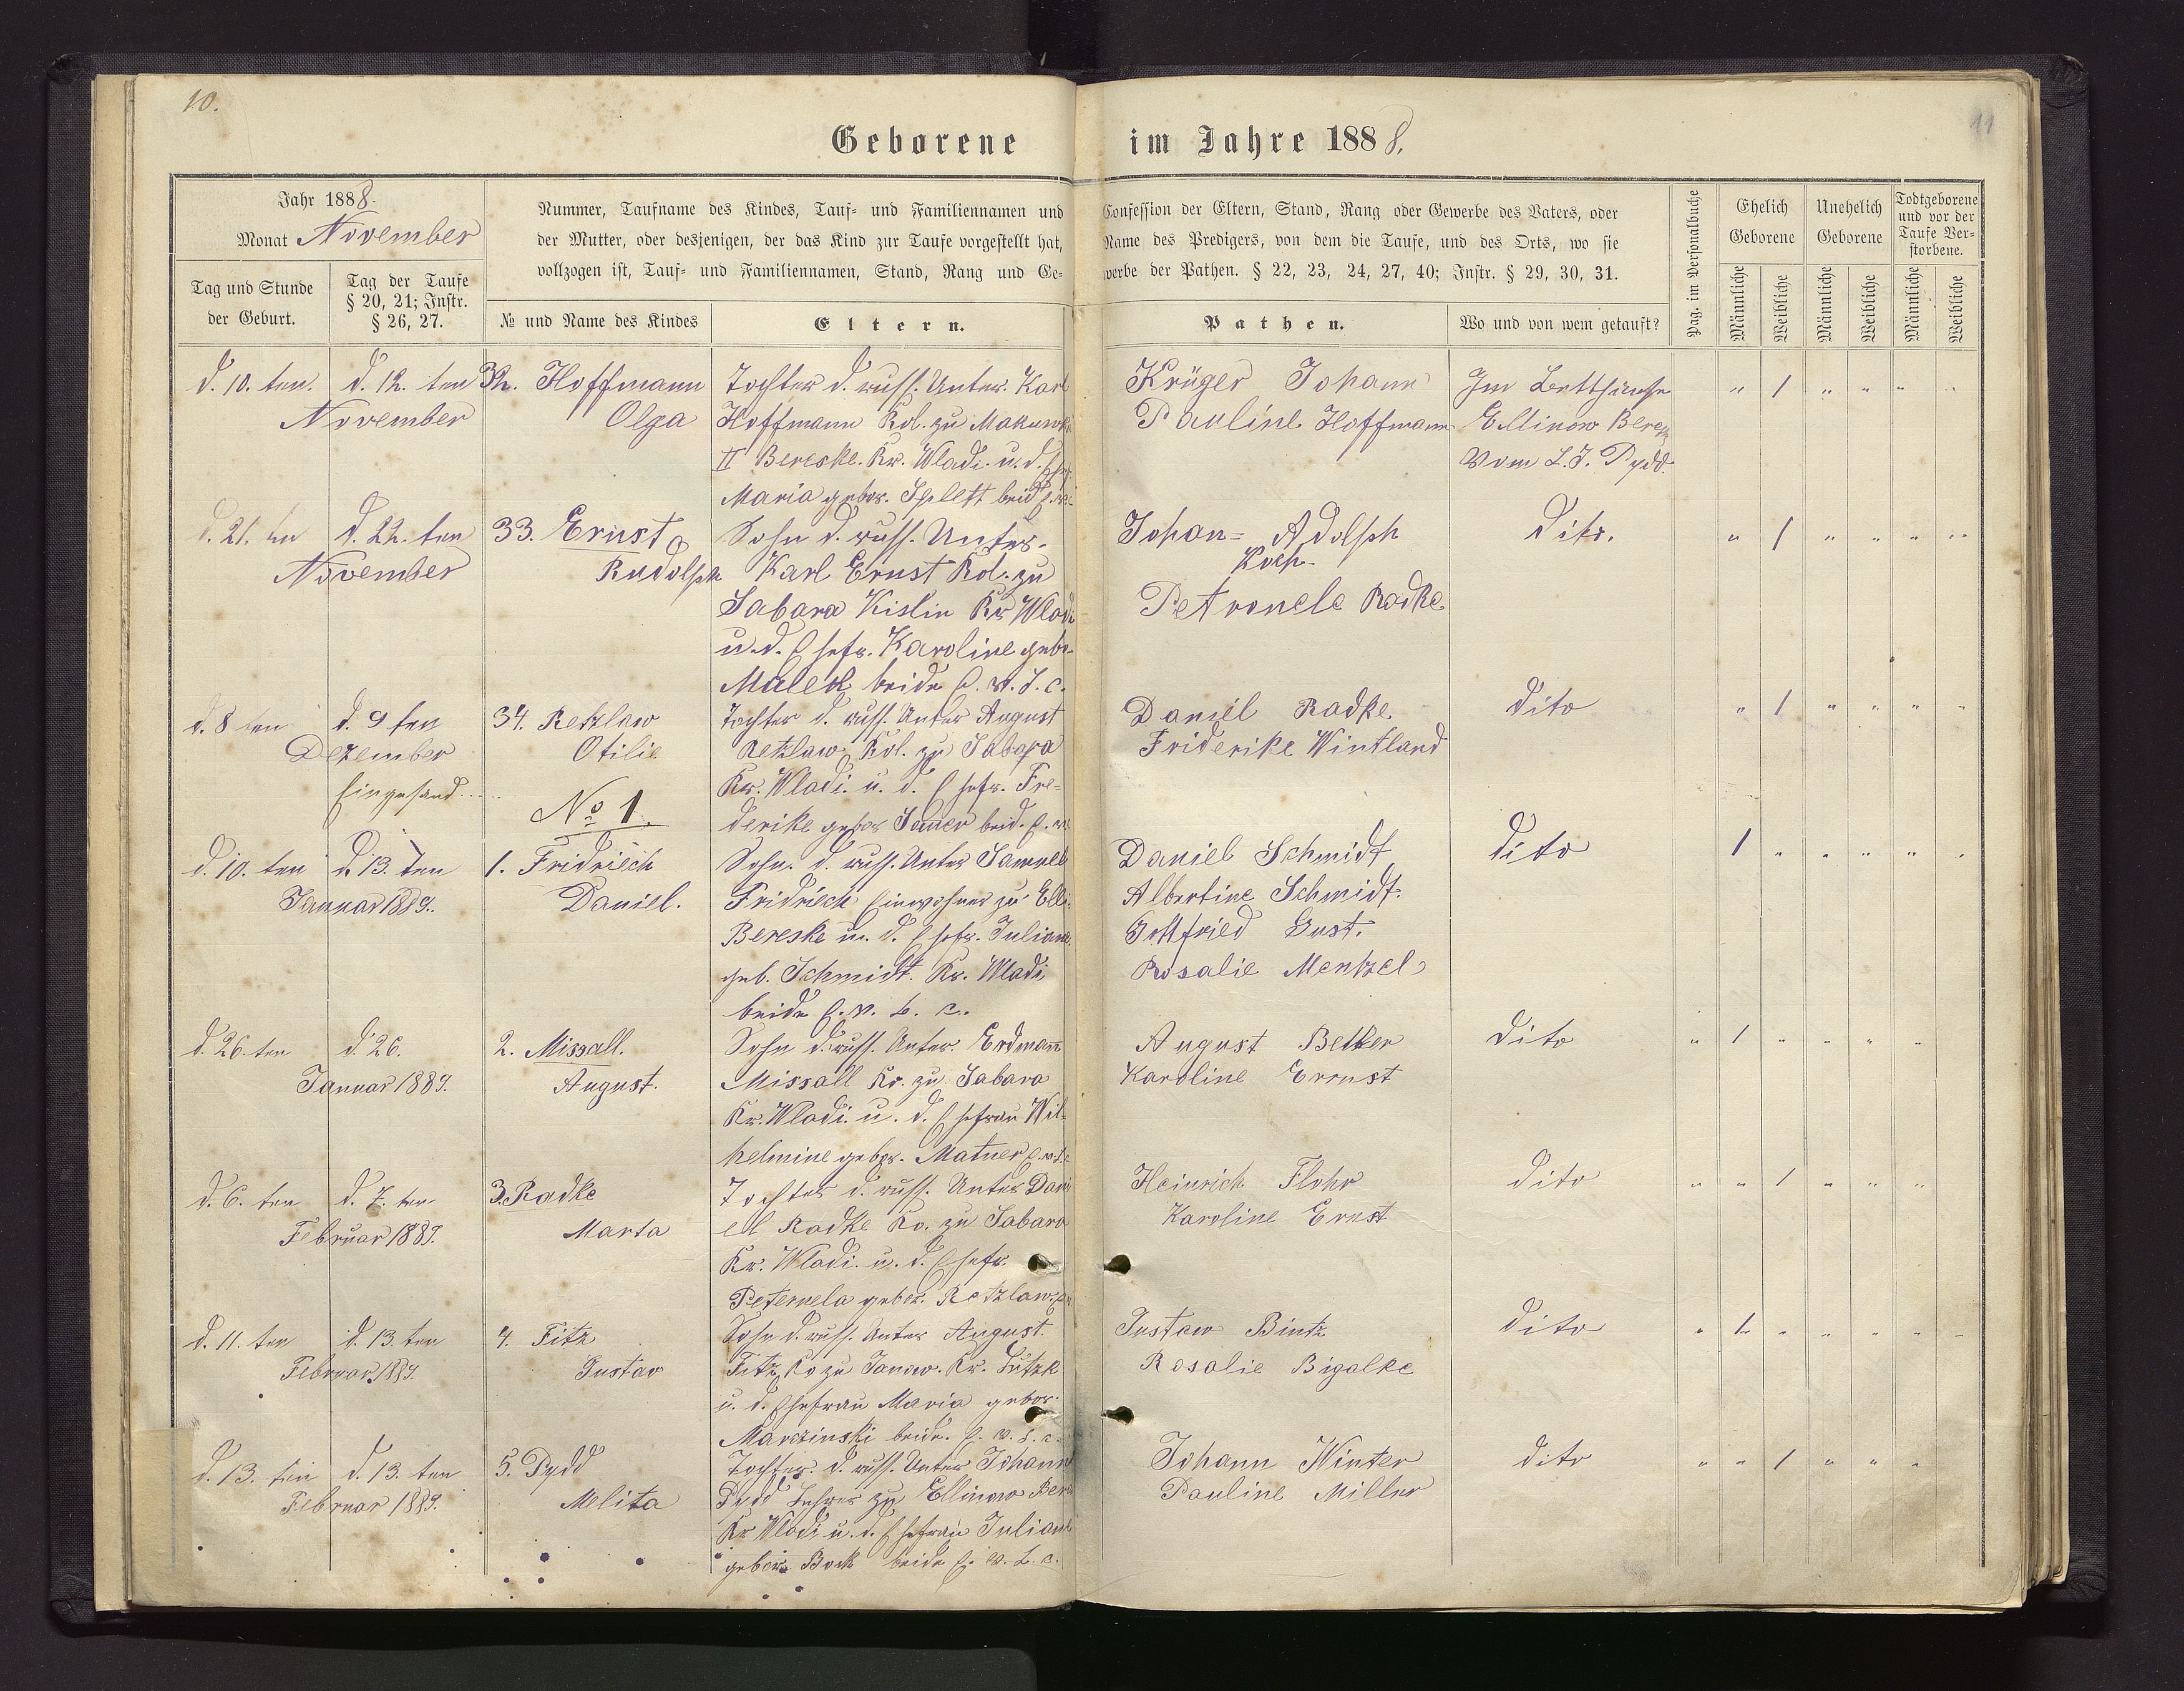 10.
11
Geborene im Jahre 1888.
Jahr 1888.
Monat November
Tag und Stunde
der Geburt.
Tag der Taufe
§ 20, 21; Instr.
§ 26, 27.
Nummer, Taufname des Kindes, Tauf- und Familiennamen und
der Mutter, oder desjenigen, der das Kind zur Taufe vorgestellt hat,
vollzogen ist, Tauf- und Familiennamen, Stand, Rang und Ge-
№ und Name des Kindes
Eltern.
Confession der Eltern, Stand, Rang oder Gewerbe des Vaters, oder
Name des Predigers, von dem die Taufe, und des Orts, wo sie
werbe der Pathen. § 22, 23, 24, 27, 40; Instr. § 29, 30, 31.
Pathen.
Wo und von wem getauft?
Pag. im Personalbuche
Ehelich
Geborene
Unehelich
Geborene
Todtgeborene
und vor der
Taufe Ver-
storbene.
Männliche
Weibliche
Männliche
Weibliche
Männliche
Weibliche
d. 10. ten.
d. 12. ten
November
32. Hoffmann
Olga
Tochter d. russ. Unter. Karl
Hoffmann Kol. zu
II Bereske. Kr. Wladi. u. d.
Maria gebor. Splett beid
Krüger Johann
Pauline Hoffmann
Im Betthause
Ellinow
Vom L. J. Pydd.
" 1 " " " "
d. 21. ten
d. 22. ten
November
33. Ernst
Rudolph
Sohn d. russ. Unter.
Karl Ernst Kol. zu
Sabara Kislin Kr. Wladi
u. d. Ehefr. Karoline gebo-
beide
Johan= Adolph
Koch
Petronele Radke
Dito.
" 1 " " " "
d. 8 ten
d. 9 ten
Dezember
Eingesand...
34. Retzlaw
Otilie
Tochter d. russ. Unter August
Retzlaw Kol. zu Sabara
Kr. Wladi. u. d. Ehefr. Fre-
derike gebor beid.
Daniel Radke.
Friderike Wintland
Dito
" 1 " " " "
No 1.
d. 10. ten
d. 13. ten
Januar 1889.
1. Fridriech
Daniel.
Sohn. d. russ. Unter Samuel
Fridriech Einwohner zu Elli.
Bereske u. d. Ehefr. Juliane
geb. Schmidt. Kr. Wladi
beide E. v. L. c.
Daniel Schmidt
Albertine Schmidt.
Gottfried Gust.
Rosalie Mentzel
Dito
1 " " " " "
d. 26. ten
d. 26.
Januar 1889.
2. Missall.
August.
Sohn d. russ. Unter. Erdmann
Missall Ko. zu Sabara
Kr. Wladi. u. d. Ehefrau Wil-
helmine gebor. Matner
August Betker
Karoline Errnst
Dito
" 1 " " " "
d. 6. ten
d. 7. ten
Februar 1889.
3. Radke
Marta
Tochter d. russ. Unter Dani
ell Radke Ko. zu Sabara
Kr. Wladi. u. d. Ehefr.
Peternela gebor. Retzlaw
Heinrich Flohr
Karoline Ernst
Dito
" " 1 " " "
d. 11. ten
d. 13. ten
Februar 1889.
4. Fitz
Gustav
Sohn d. russ. Unter August
Fitz Ko zu Janow. Kr. Lutzk
u. d. Ehefrau Maria gebor.
Marzinski beide. E. v. L. c.
Gustaw Bintz
Rosalie Bigalke
Dito
" 1 " " " " "
d. 13. ten
d. 13. ten
Februar 1889.
5. Pydd
Melita
Tochter. d. russ. Unter Johann
Pydd Lehrer zu Ellinow Ber
Kr Wladi u. d. Ehefrau Juliane
gebor. Bock beide E. v. L. c.
Johann Winter
Pauline Miller
Dito
" " 1 " " "